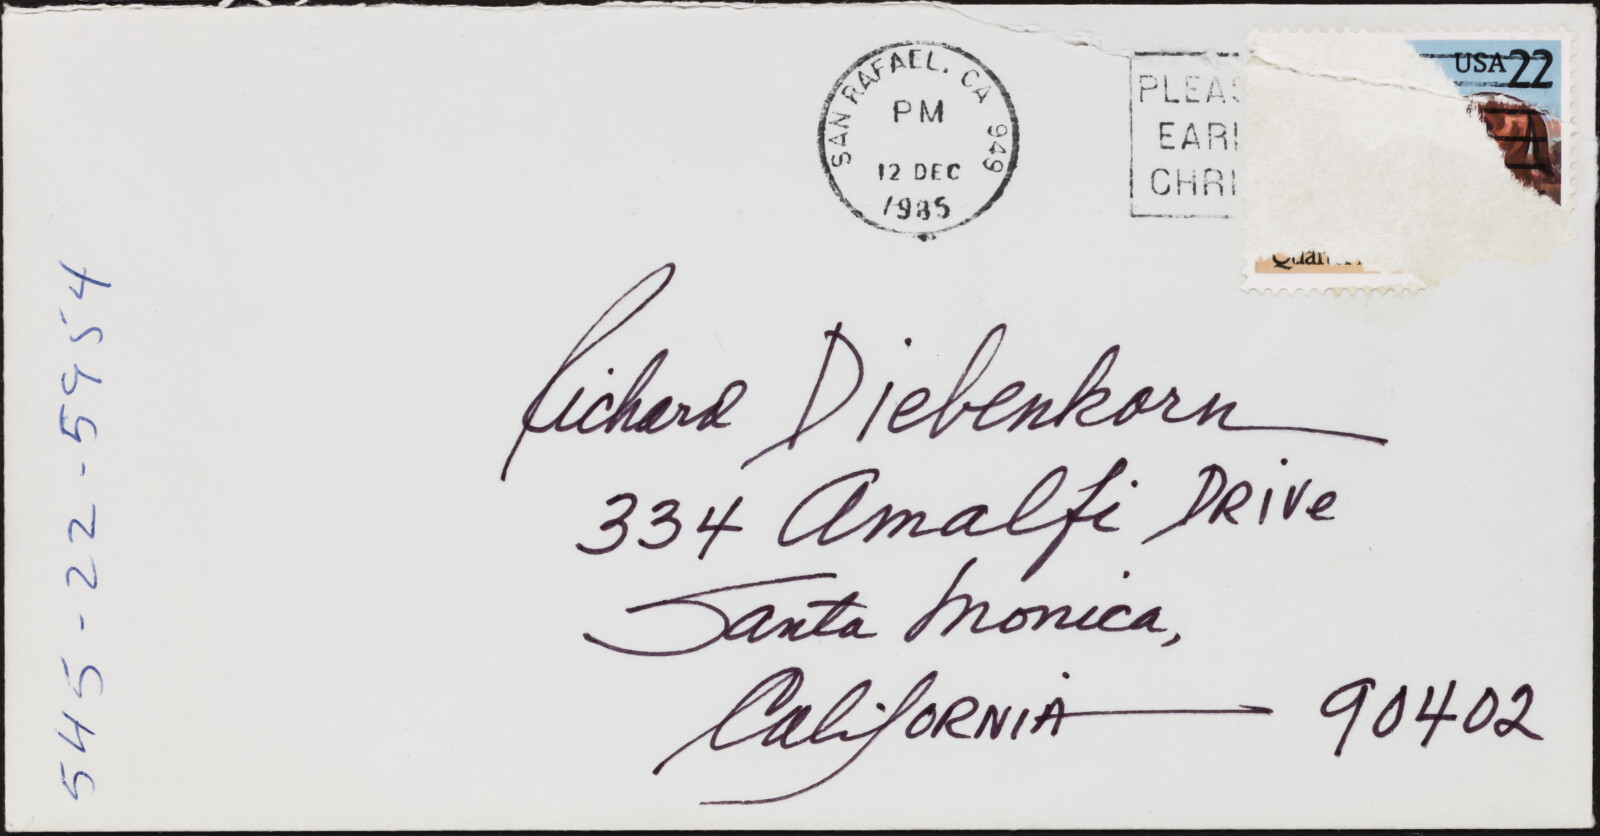 SAN RAFAEL, CA 949
PM
12 DEC
1985
PLEAS
EARL
CHRI
USA 22
Richard Diebenkorn
334 Amalfi DRive
Santa Monica,
CalifORNIA 90402
545-22-5954